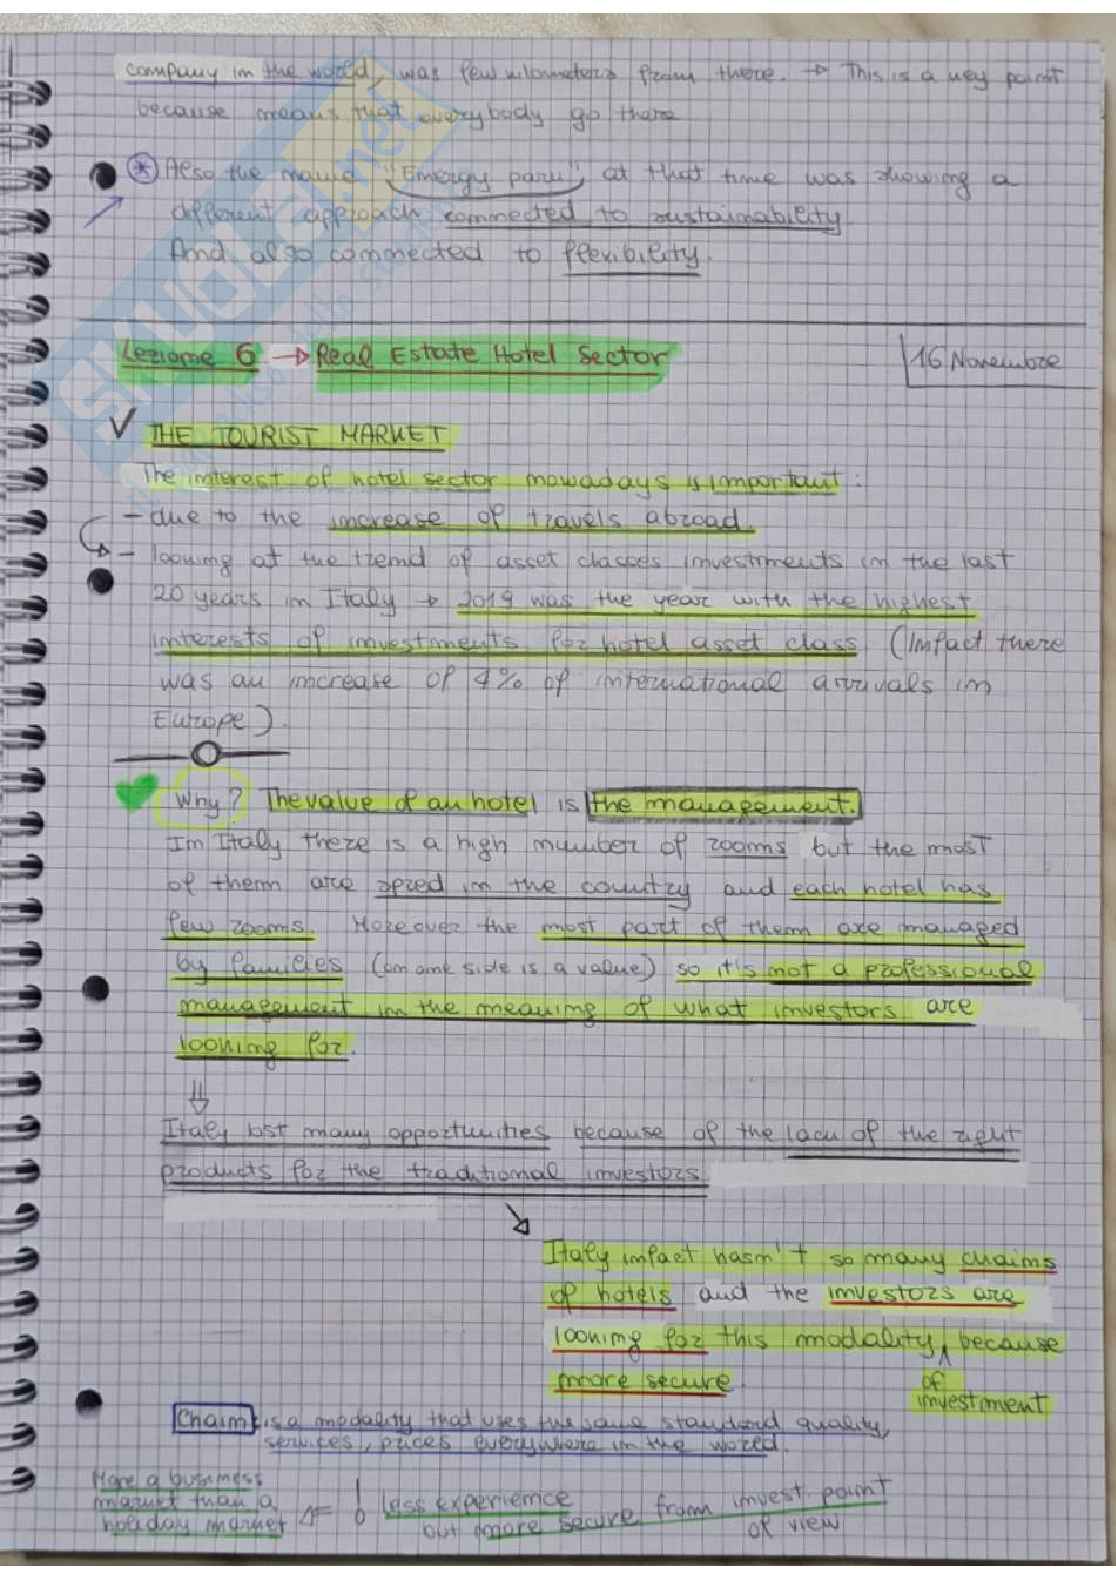 company in the world, was few kilometers from there. → This is a key point
because means that everybody go there
* Also the name "Energy park" at that time was showing a
different approach connected to sustainability.
And also connected to flexibility.
Lezione 6 → Real Estate Hotel Sector
16 Novembre
✓ THE TOURIST MARKET
The interest of hotel sector nowadays is important:
- due to the increase of travels abroad.
- looking at the trend of asset classes investments in the last
20 years in Italy → 2019 was the year with the highest
interests of investments for hotel asset class (Infact there
was an increase of 4% of international arrivals in
Europe).
Why? The value of an hotel is the management.
In Italy there is a high number of rooms but the most
of them are spred in the country and each hotel has
few rooms. Moreover the most part of them are managed
by families (on one side is a value) so it's not a professional
management in the meaning of what investors are
looking for.
⇓
Italy lost many opportunities because of the lack of the right
products for the traditional investors
Italy infact hasn't so many chains
of hotels and the investors are
looking for this modality, because
of
investment
more secure
Chain is a modality that uses the same standard quality,
services, prices everywhere in the world.
More a business
market than a
holiday market
⇐ ! less experience from invest. point
but more secure of view
skuola.net